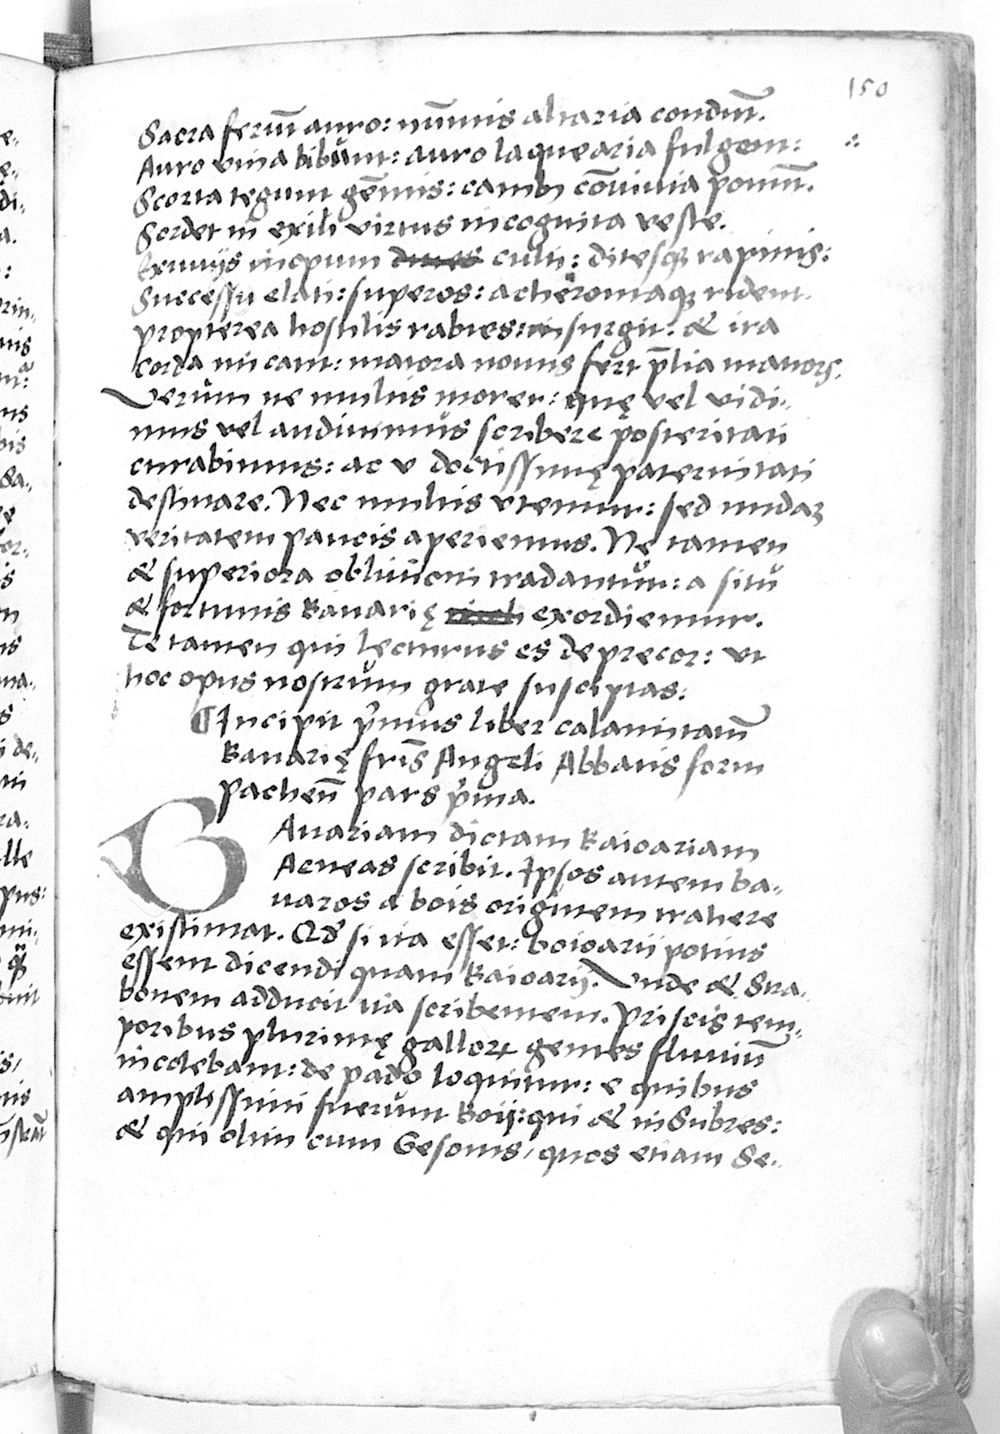 150
Sacra feriũt auro: nũmis altaria condũt.
Auro vina bibunt: auro laquearia fulgent:
Scorta tegunt gẽmis: cambi cõuiuia ponũt.
Sordet in exili virtus incognita veste.
Exuuijs inopum culti: ditesq; rapinis:
Successu elati: superos: acherontaq; rident.
propterea hostilis rabies: insurgit: & ira
corda micant: maiora nouus fert p̃lia mauors.
Verum ne multis morer: quę vel vidi-
mus vel audiuimus scribere posteritati
curabimus: ac v doctissimę paternitati
destinare. Nec multis vtemur: sed nudaʒ
veritatem paucis aperiemus. Ne tamen
& superiora obliuioni tradantur: a situ
& fortunis Bauarię exordiemur.
Te tamen qui lecturus es deprecor: vt
hoc opus nostrum grate suscipias:
¶ Incipit p̃mus liber calamitatũ
Bauarię fris̃ Angeli Abbatis form
pacheñ pars p̃ma.
BAuariam dictam Baioariam
Aeneas scribit. Ipsos autem ba-
uaros a bois originem trahere
existimat. Qd̃ si ita esset: boioarii potius
essent dicendi quam Baioarij. Vnde & Stra-
bonem adducit ita scribentem. Priscis tem-
poribus plurimę galloꝝ gentes fluuiũ
incolebant: de pado loquitur: e quibus
amplissimi fuerunt Boij: qui & insubres:
& qui olim cum Gesonis, quos etiam Se-